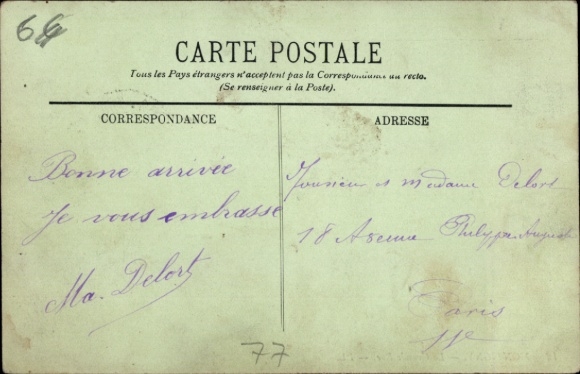 64
CARTE POSTALE
Tous les Pays étrangers n'acceptent pas la Correspondance au recto.
(Se renseigner à la Poste).
CORRESPONDANCE
ADRESSE
Bonne arrivée
Je vous embrasse
Ma. Delort
Monsieur et Madame Delort
18 Avenue Philippe Auguste
Paris
77